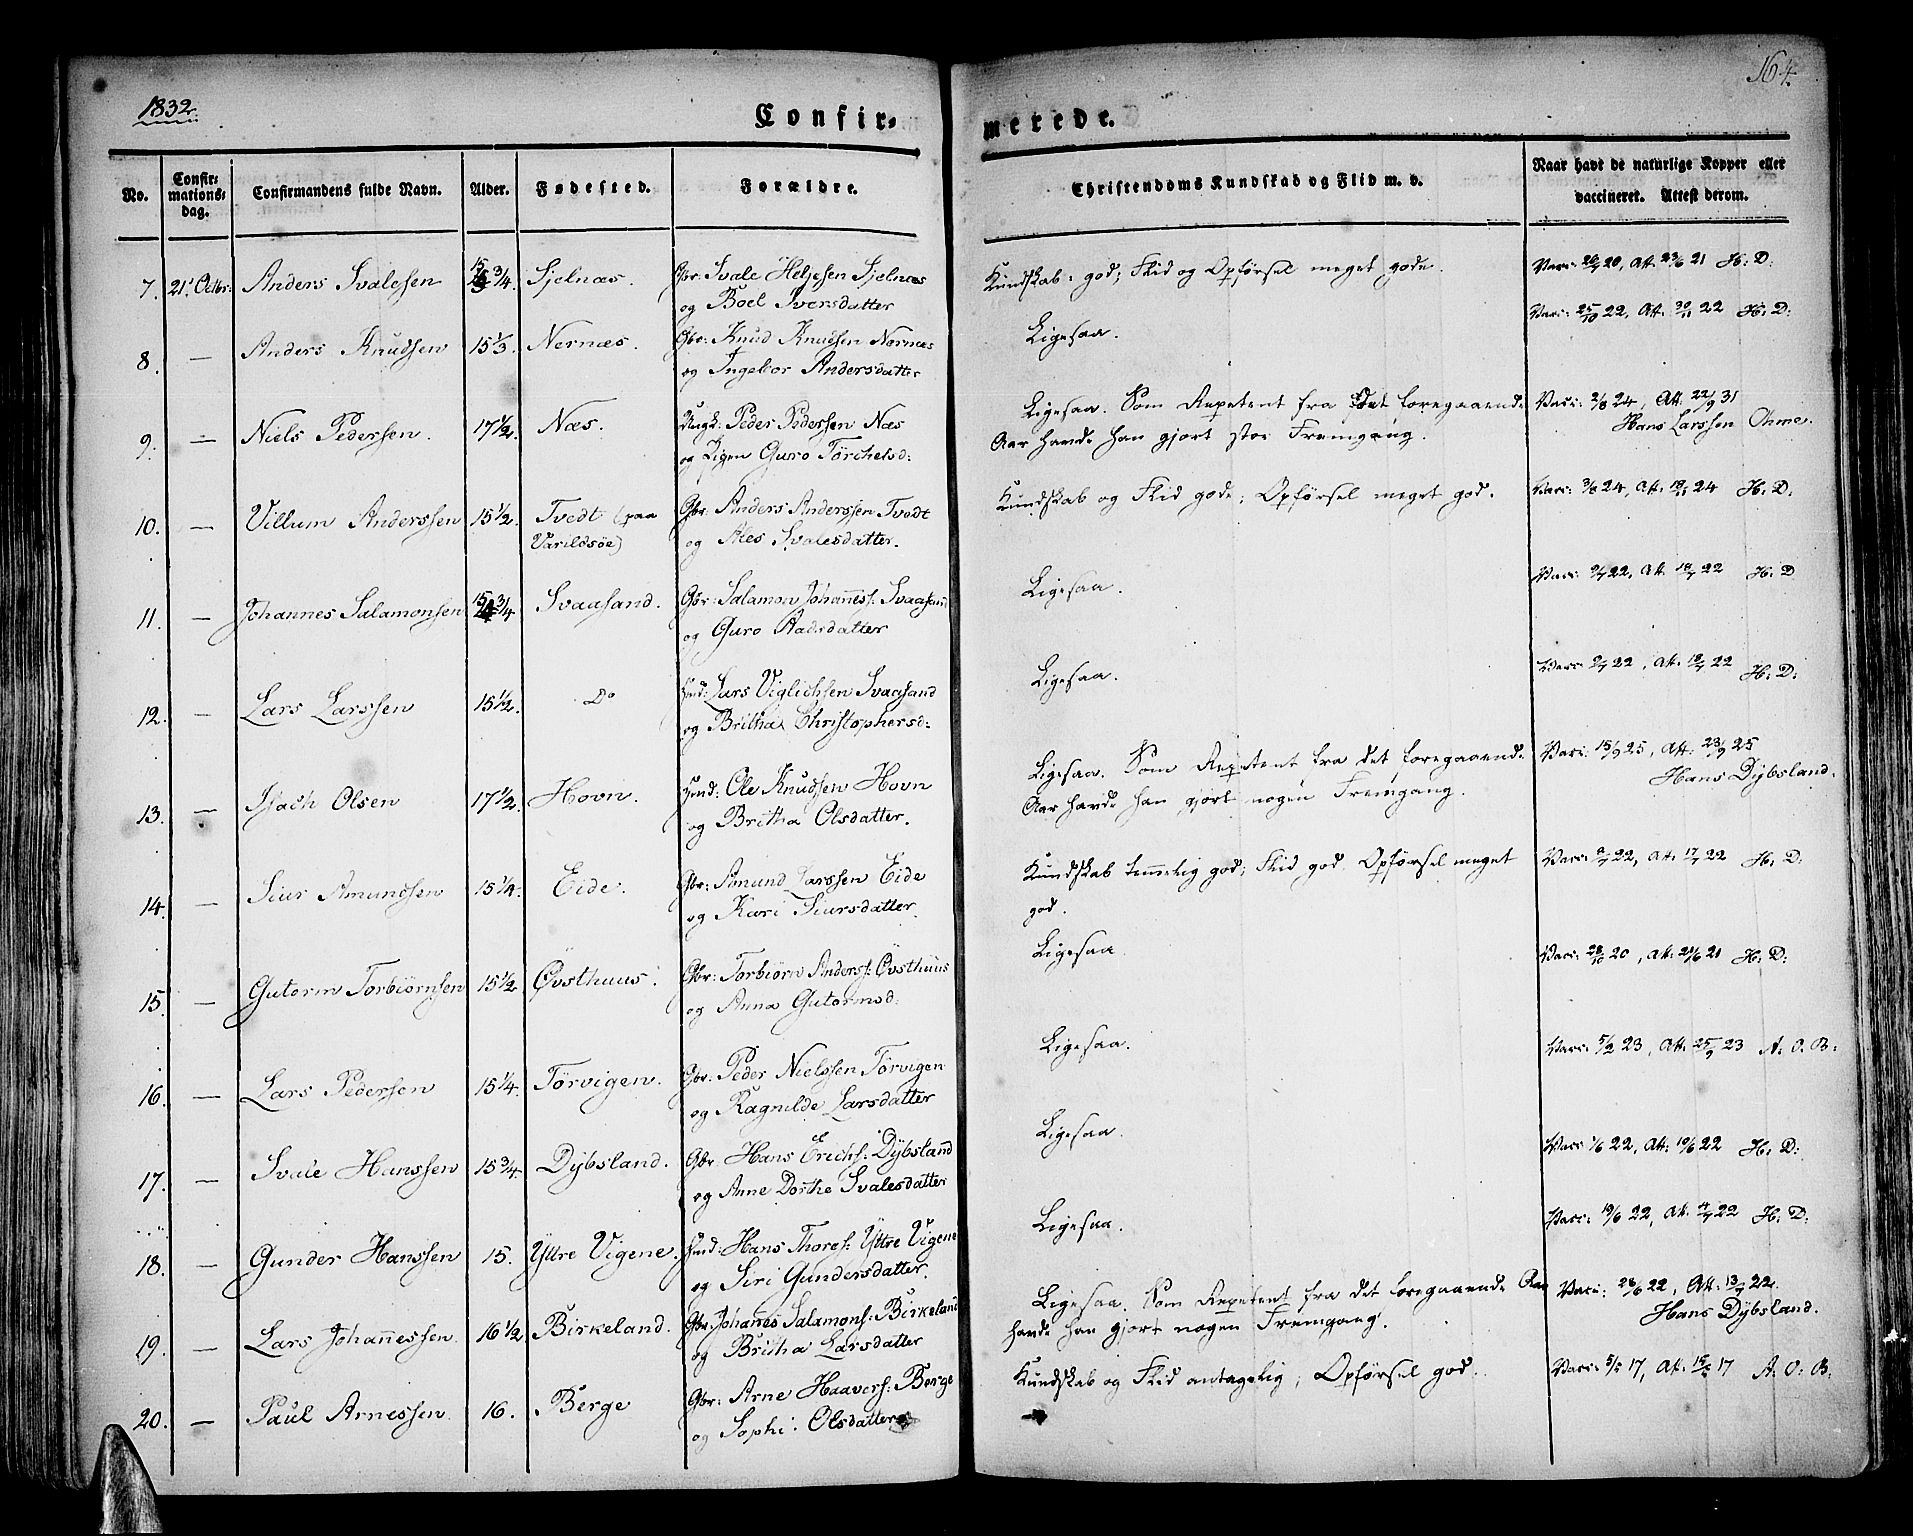 1832.
164.
Confir-
merede.
No.
Confir-
mations-
dag.
Confirmandens fulde Navn.
Alder.
Fødested.
Forældre.
Christendoms Kundskab og Flid m. v.
Naar havt de naturlige Kopper eller
vaccineret. Attest derom.
7. 21' Octbr: Anders Svalesen 15 3/4. Sjelnæs. Gbr: Svale Heljesen Sjelnæs
og Boel Iversdatter
Kundskab: god; Flid og Opførsel meget gode.
20, Att. 21 H: D:
8. — Anders Knudsen 15 1/3. Nernæs. Gbr: Knud Knudsen Nernæs
og Ingebor Andersdatter
Ligesaa.
Vacc: 25/10 22, Att. 30/11 22 H: D:
9. — Niels Pedersen. 17 1/2. Næs. Peder Pedersen Næs
og Pigen Guro Törchelsd:
Ligesaa. Som Repetent fra det foregaaende
Aar havde han gjort stor Fremgang.
Vacc: 2/8 24, Att. 22/9 31
Hans Larssen Ohme.
10. — Villum Anderssen 15 1/2. Tvedt (paa
Varildsöe)
Gbr: Anders Anderssen Tvedt
og Ales Svalesdatter.
Kundskab og Flid gode; Opførsel meget god.
Vacc: 3/8 24, Att: 24 H: D:
11. — Johannes Salamonsen 15 3/4 Svaasand. Gbr: Salamon Johaness: Svaasand
og Guro Aadsdatter
Ligesaa.
Vacc: 9/7 22, Att. 18/7 22 H: D
12. — Lars Larssen 15 1/2. Do Lars Viglichsen Svaasand
og Britha Christophersd:
Ligesaa.
Vacc: 9/7 22, Att. 18/7 22 H: D:
13. — Isach Olsen 17 1/2. Hovn. Ole Knudsen Hovn
og Britha Olsdatter.
Ligesaa. Som Repetent fra det foregaaende
Aar havde han gjort nogen Fremgang.
Vacc: 15/9 25, Att: 23/9 25
Hans Dÿbsland.
14. — Siur Amundsen 15 1/4. Eide. Gbr: Amund Larssen Eide
og Kari Siursdatter.
Kundskab temmelig god; Flid god. Opførsel meget
god.
Vacc: 22, Att: 17/7 22 H: D:
15. — Gutorm Torbiörnsen 15 1/2 Øvsthuus. Gbr: Torbiörn Anderss: Øvsthuus
og Anna Gutormsd:
Ligesaa
Vacc: 28/10 20, Att: 21 H: D:
16. — Lars Pedersen 15 1/4. Törvigen. Gbr: Peder Nielssen Törvigen
og Ragnilde Larsdatter
Ligesaa.
Vacc: 5/2 23, Att. 25/9 23 A: O: B:
17. — Svale Hanssen 15 3/4. Dÿbsland. Gbr. Hans Erichs: Dÿbsland
og Anne Dorthe Svalesdatter
Ligesaa.
Vacc: 1/6 22, Att: 10/6 22 H: D:
18. — Gunder Hanssen 15. Yttre Vigene. Hans Thores: Yttre Vigene
og Siri Gundersdatter.
Ligesaa.
Vacc: 19/6 22, Att. 4/7 22 H: D:
19. — Lars Johannessen 16 1/2 Birkeland. Gbr: Johannes Salamons: Birkeland
og Britha Larsdatter
Ligesaa. Som Repetent fra det foregaaende Aar
havde han gjort nogen Fremgang.
Vacc: 28/6 22, Att: 13/7 22.
Hans Dÿbsland.
20. — Paul Arnessen. 16. Berge Gbr: Arne Haavers: Berge
og Sophi: Olsdatter
Kundskab og Flid antagelig; Opførsel god.
Vacc: 5/5 17, Att. 17 A: O: B: